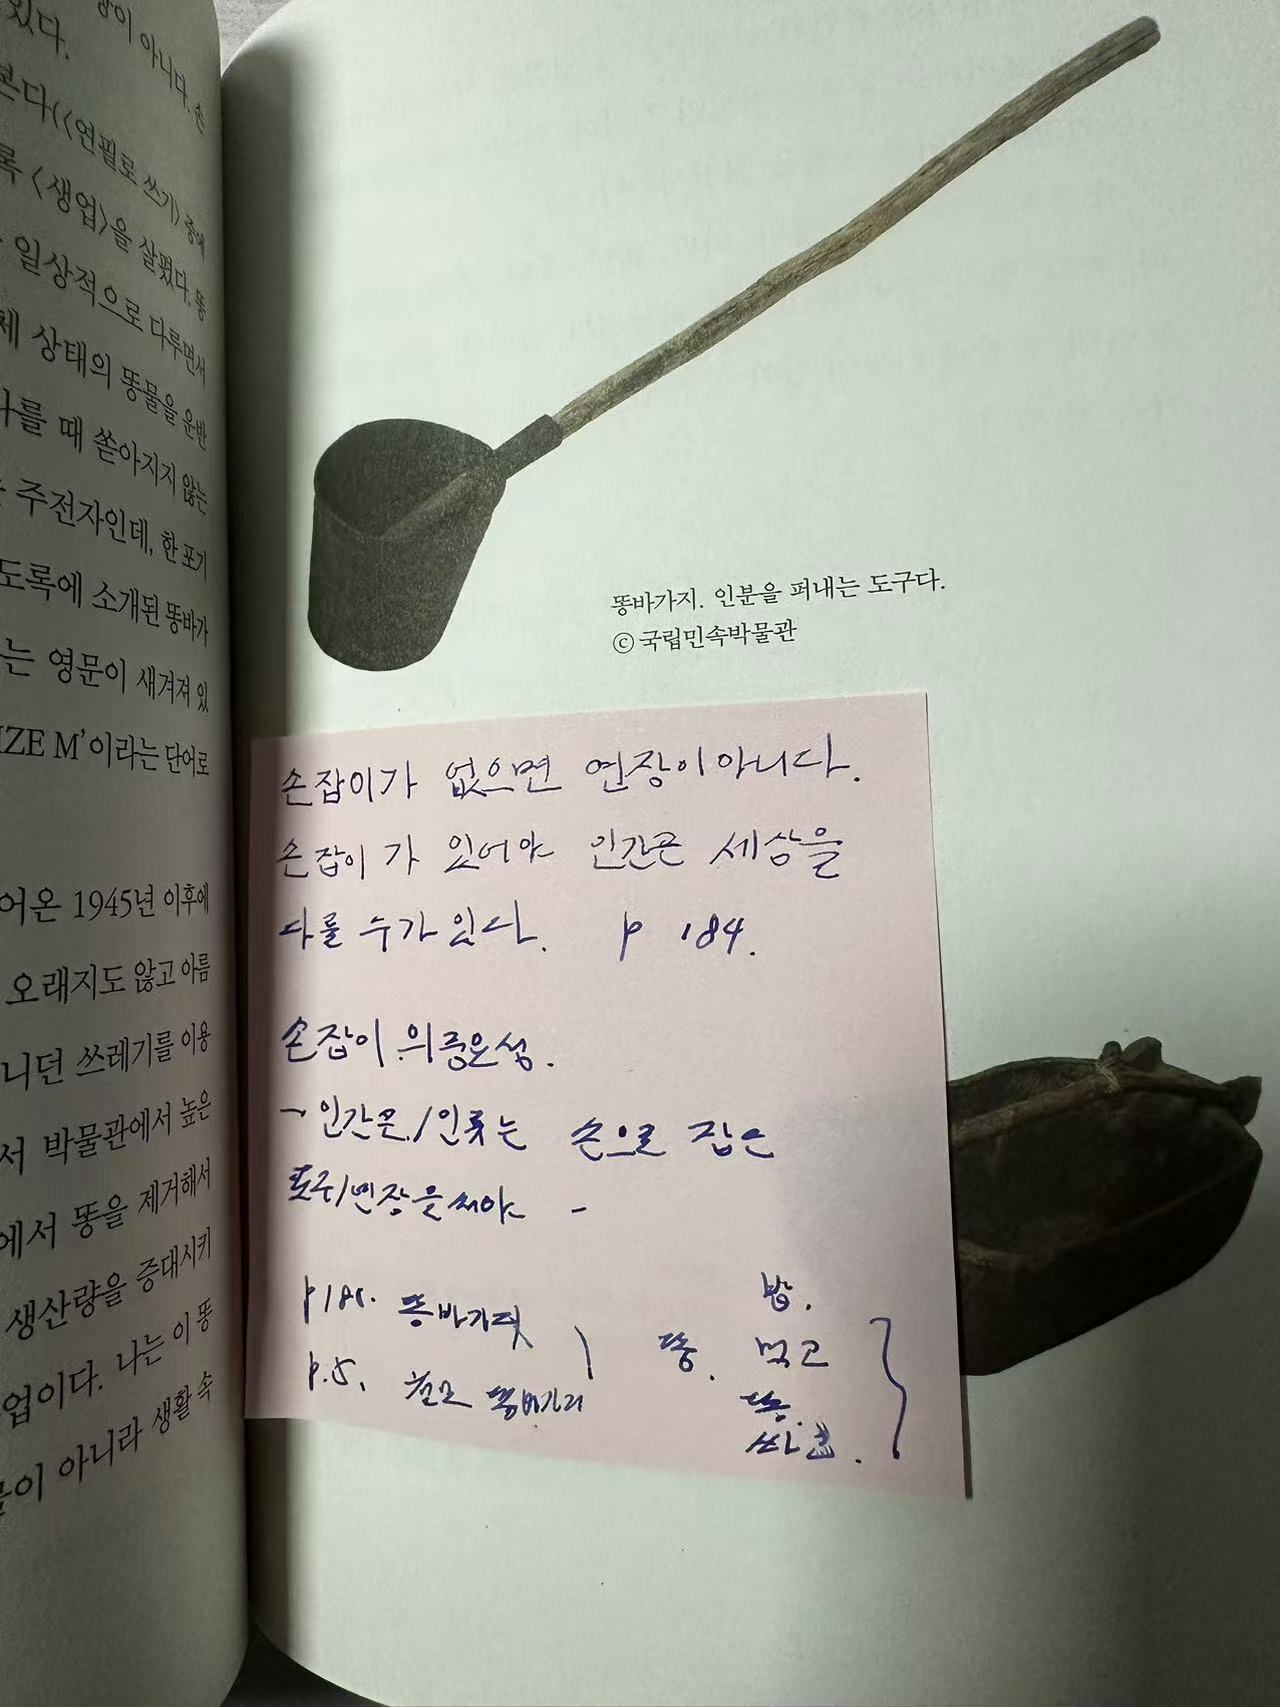 있다.
장이 아니다. 손
본다(《연필로 쓰기》 중에
록 〈생업〉을 살폈다. 똥
일상적으로 다루면서
체 상태의 똥물을 운반
나를 때 쏟아지지 않는
주전자인데, 한 포기
도록에 소개된 똥바가
는 영문이 새겨져 있
IZE M'이라는 단어로
어온 1945년 이후에
오래지도 않고 아름
니던 쓰레기를 이용
서 박물관에서 높은
에서 똥을 제거해서
생산량을 증대시키
업이다. 나는 이 똥
이 아니라 생활 속
똥바가지. 인분을 퍼내는 도구다.
ⓒ 국립민속박물관
손잡이가 없으면 연장이 아니다.
손잡이가 있어야 인간은 세상을
다룰 수가 있다. p 184.
손잡이의 중요성.
→ 인간은/인류는 손으로 잡은
도구/연장을 써야 -
똥바가지
p.5. 똥바가지
똥.
밥.
먹고
똥.
싸고.